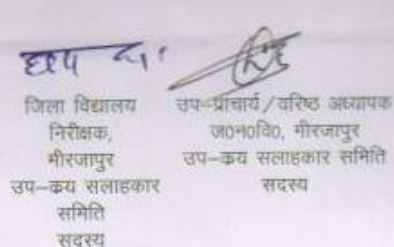 जिला विद्यालय
निरीक्षक,
मीरजापुर
उप–क्रय सलाहकार
समिति
सदस्य
उप–प्राचार्य / वरिष्ठ अध्यापक
ज0न0वि0, मीरजापुर
उप–क्रय सलाहकार समिति
सदस्य